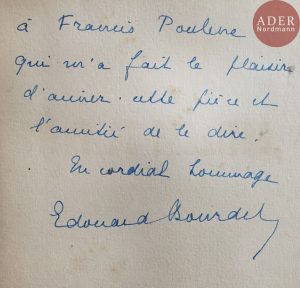 ADER
Nordmann
à Francis Poulenc
qui m'a fait le plaisir
d'aimer cette pièce et
l'amitié de le dire.
En cordial hommage
Edouard Bourdet